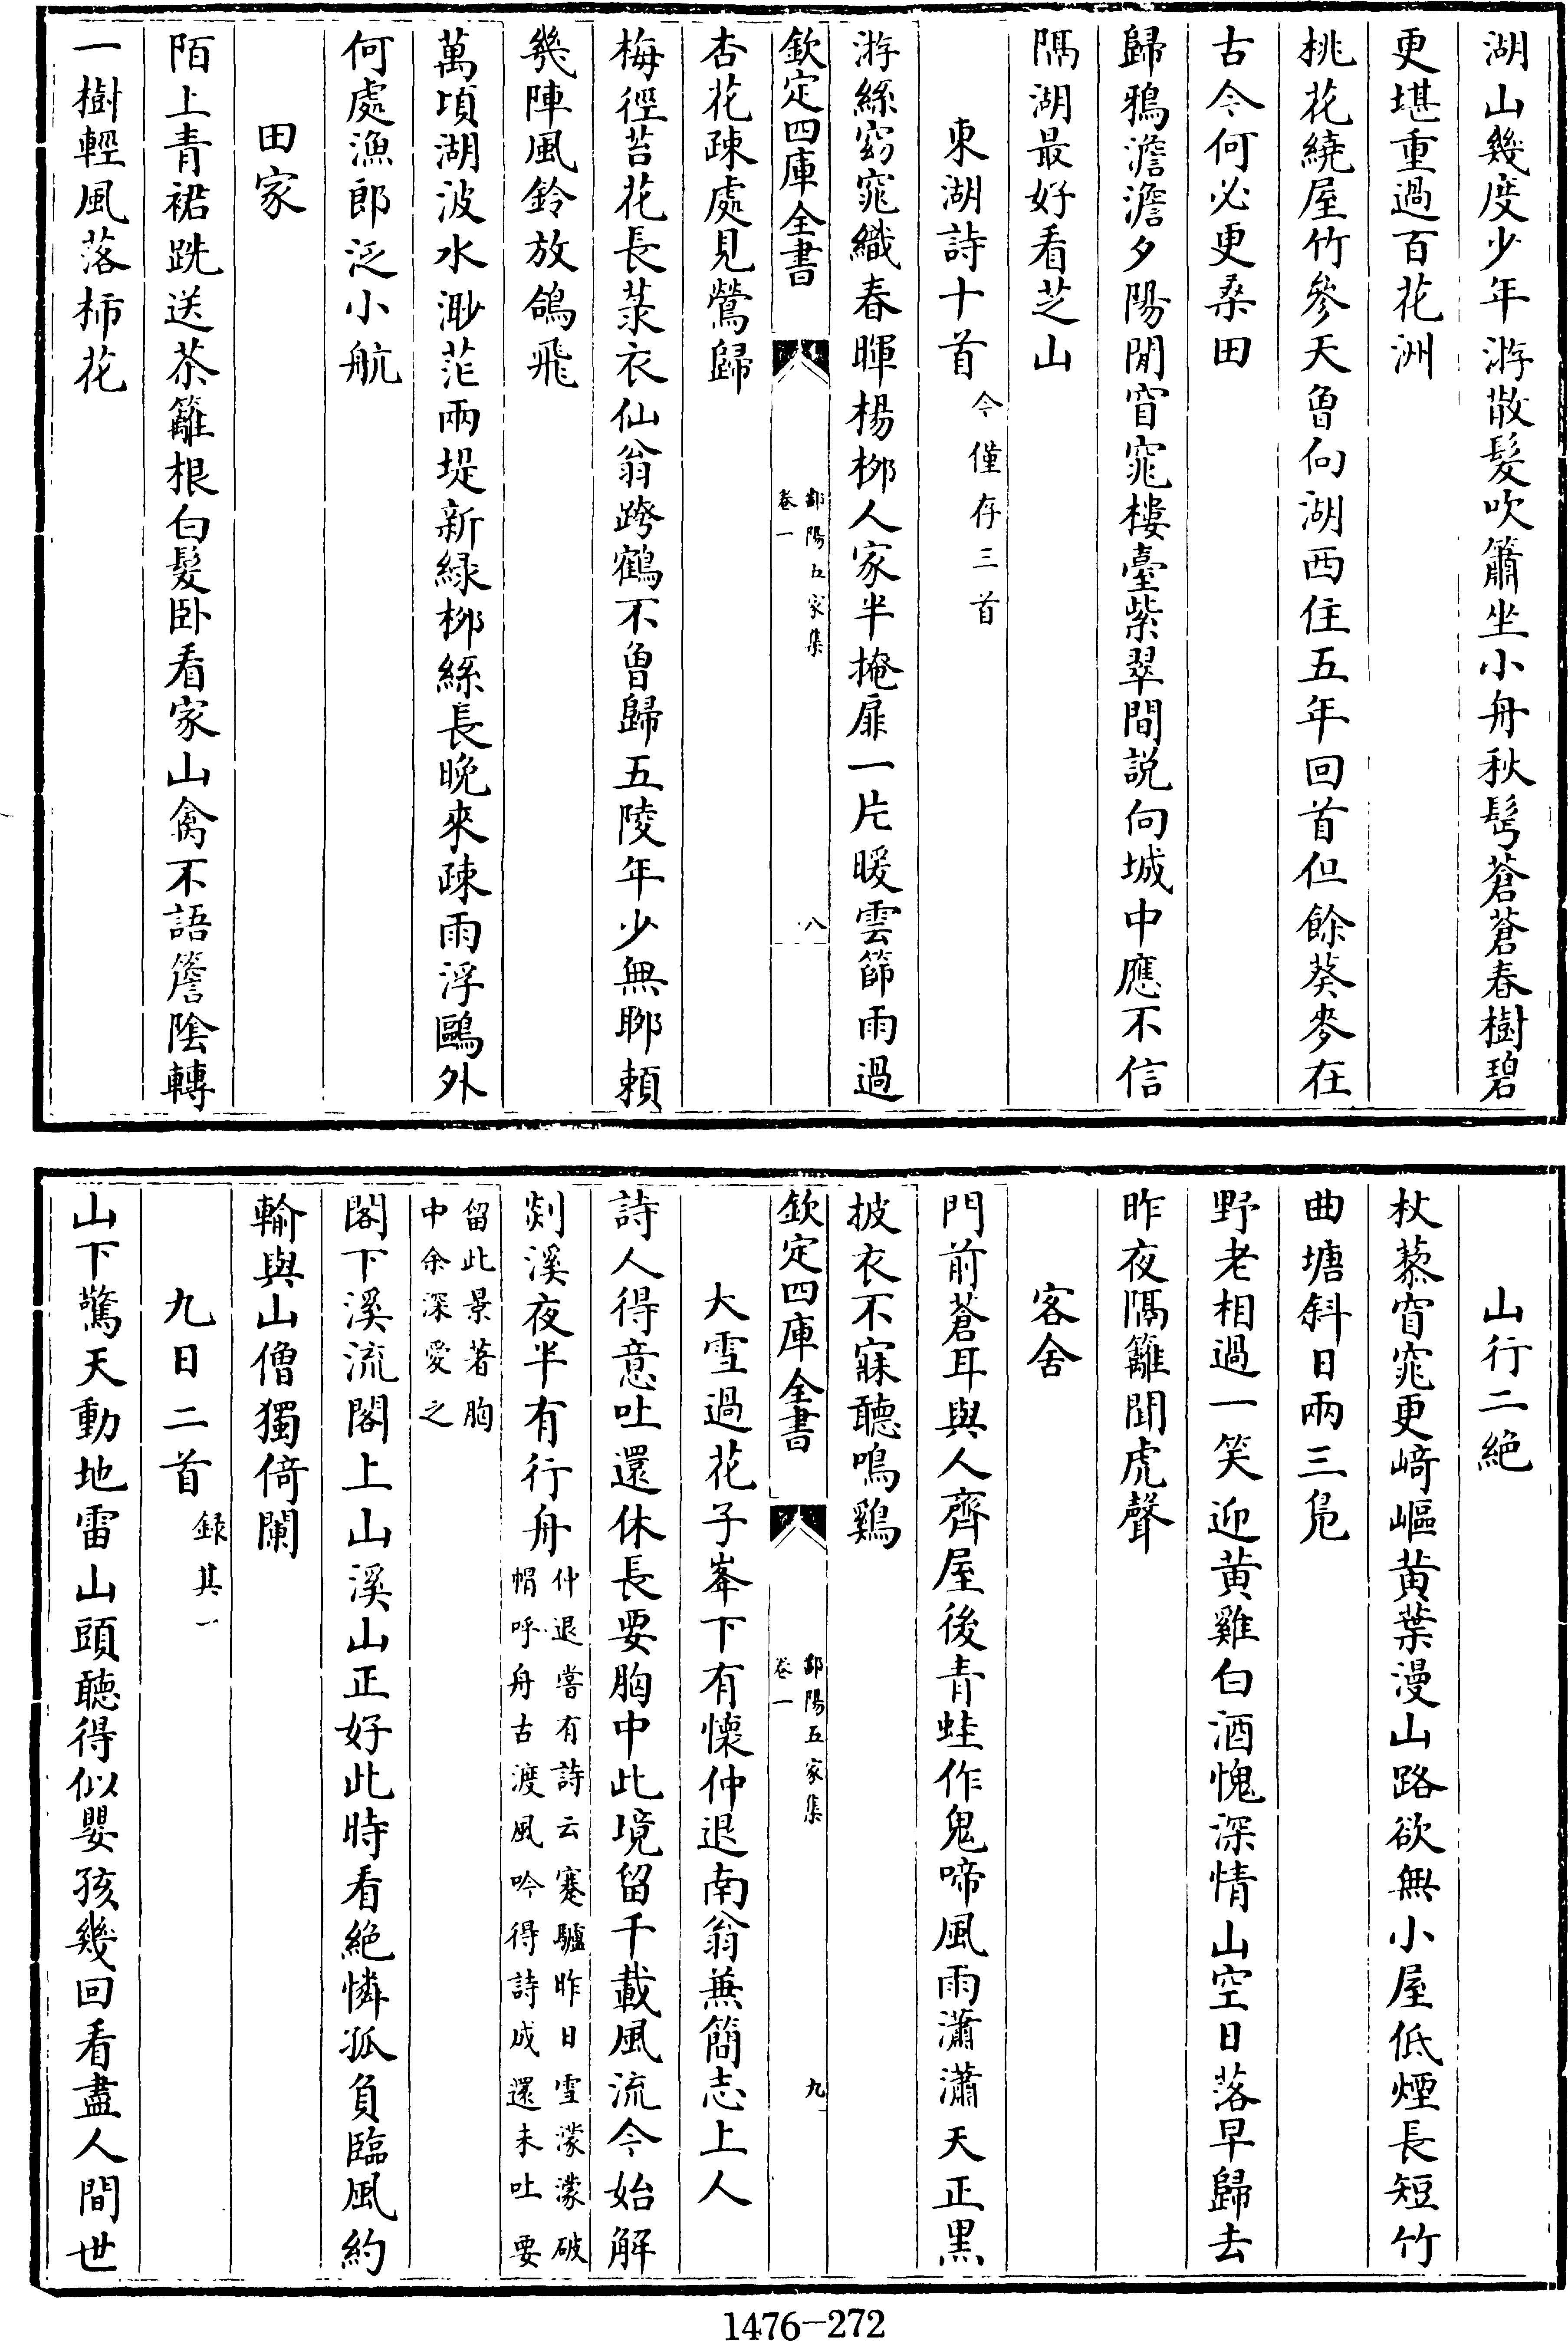 湖山幾度少年游散髮吹簫坐小舟秋髩蒼蒼春樹碧
更堪重過百花洲
桃花繞屋竹參天曾向湖西住五年回首但餘葵麥在
古今何必更桑田
歸鴉澹澹夕陽閒窅窕樓臺紫翠間説向城中應不信
隔湖最好看芝山
東湖詩十首今僅存三首
游絲窈窕織春暉楊栁人家半掩扉一片暖雲節雨過
欽定四庫全書
鄱陽五家集
卷一
八
杏花疎處見鶯歸
梅徑苔花長菉衣仙翁跨鶴不曾歸五陵年少無聊頼
幾陣風鈴放鴿飛
萬頃湖波水渺茫兩堤新緑栁絲長晚來疎雨浮鷗外
何處漁郎泛小航
田家
陌上青裙跣送茶籬根白髮卧看家山禽不語簷陰轉
一樹輕風落柿花
山行二絶
杖藜窅窕更﨑嶇黄葉漫山路欲無小屋低煙長短竹
曲塘斜日兩三鳬
野老相過一笑迎黄雞白酒愧深情山空日落早歸去
昨夜隔籬聞虎聲
客舍
門前蒼耳與人齊屋後青蛙作鬼啼風雨瀟瀟天正黒
披衣不寐聽鳴鷄
欽定四庫全書
鄱陽五家集
卷一
九
大雪過花子峯下有懷仲退南翁兼簡志上人
詩人得意吐還休長要胸中此境留千載風流今始解
剡溪夜半有行舟仲退嘗有詩云蹇驢昨日雪濛濛破
帽呼舟古渡風吟得詩成還未吐要
留此景著胸
中余深愛之
閣下溪流閣上山溪山正好此時看絶憐孤負臨風約
輸與山僧獨倚闌
九日二首録其一
山下驚天動地雷山頭聽得似嬰孩幾回看盡人間世
1476—272